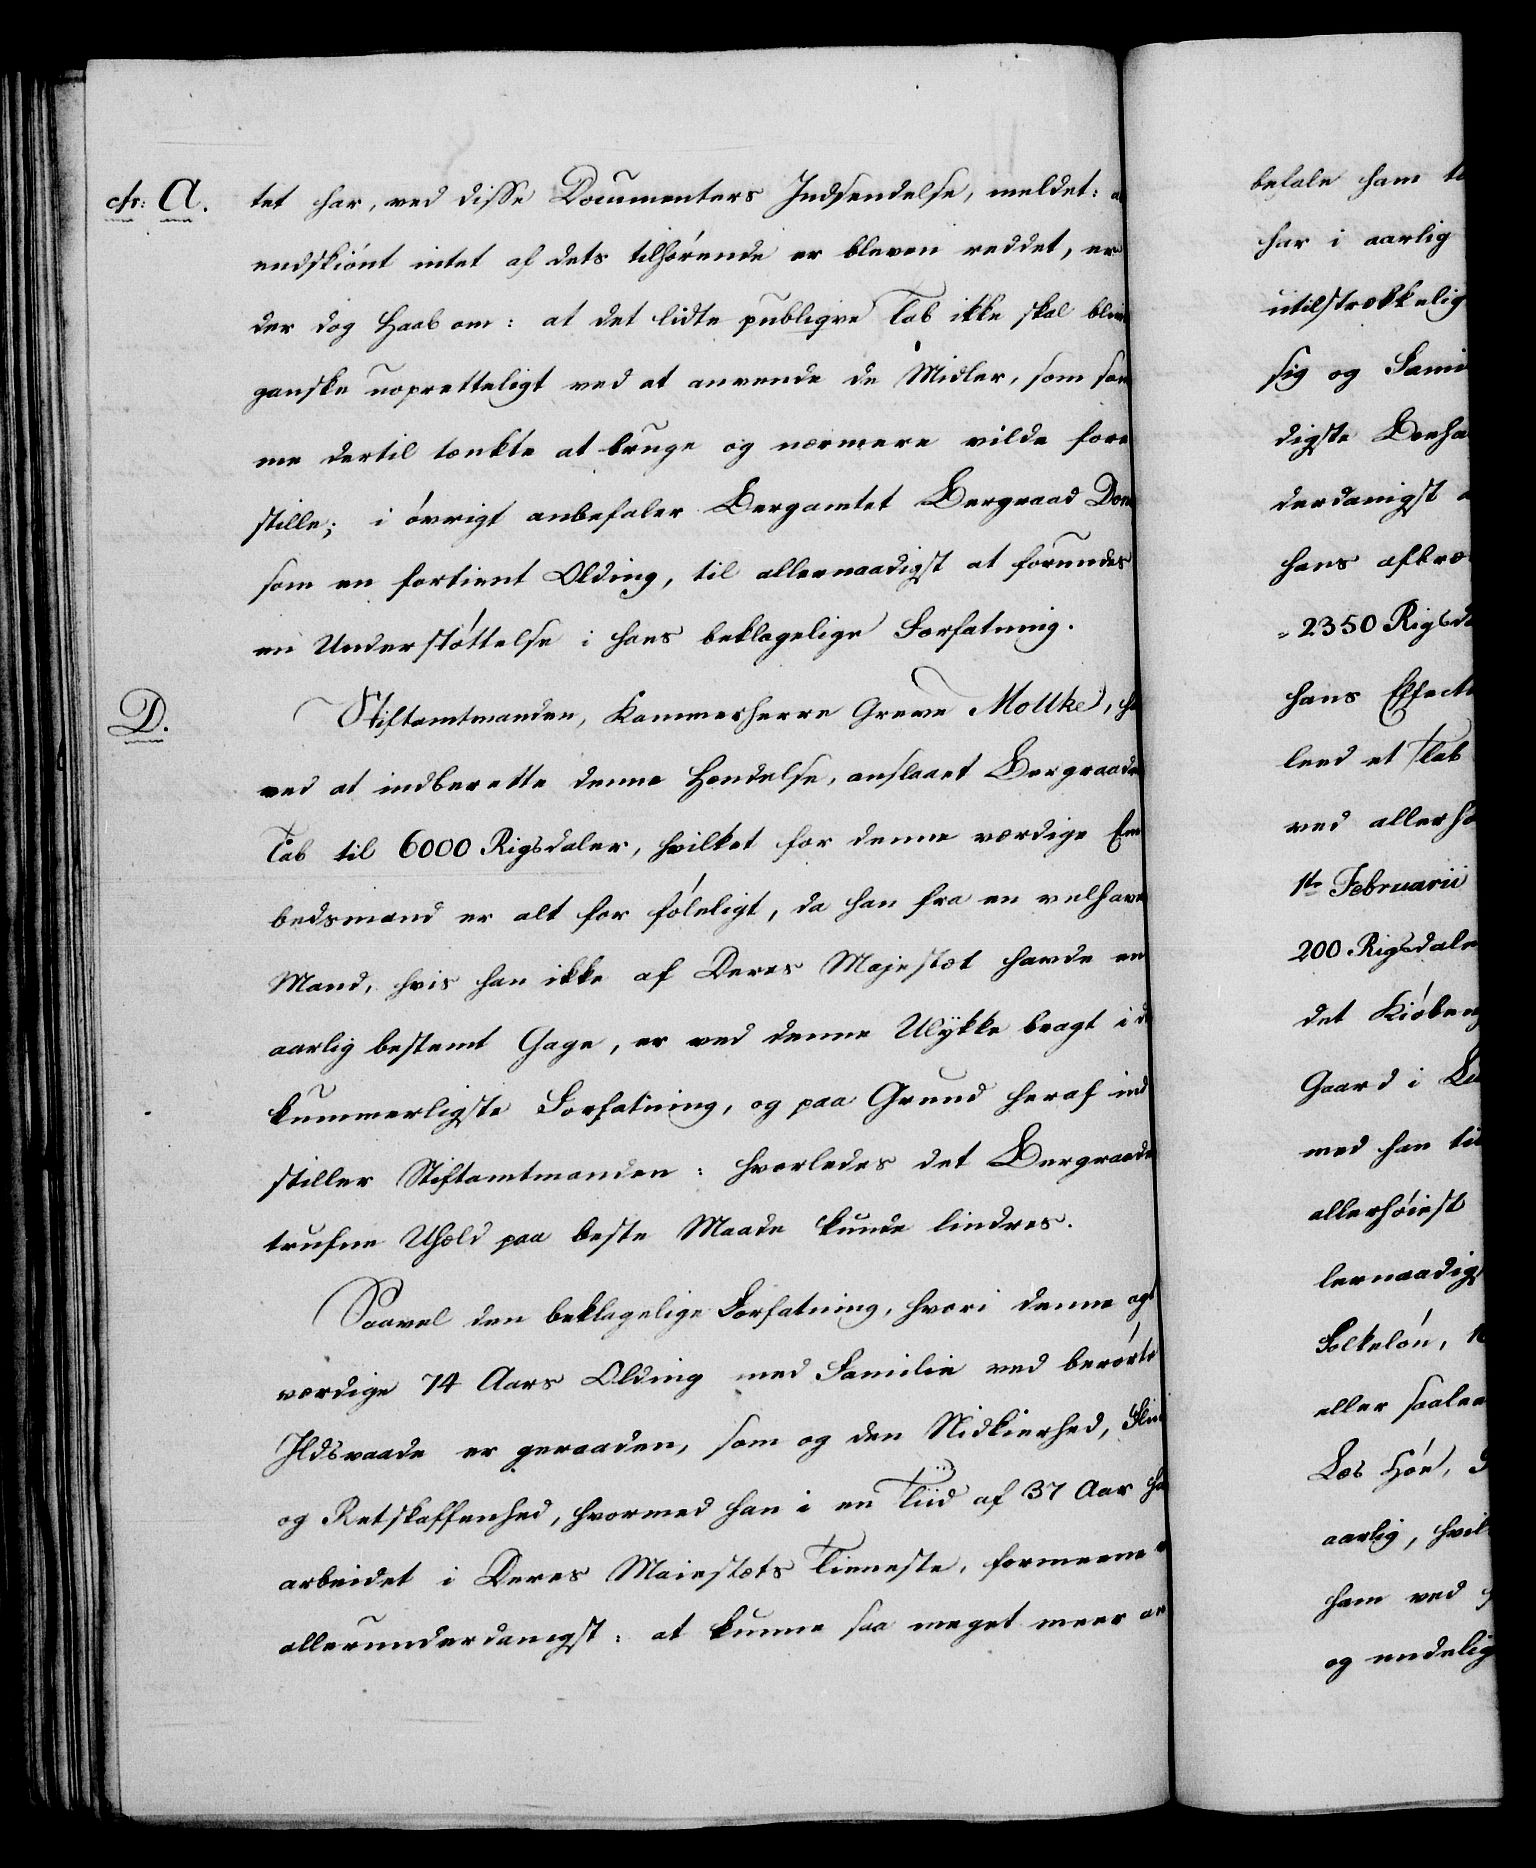 cfr: A.
tet har, ved disse Documenters Indsendelse, meldet: a
endskiönt intet af dets tilhørende er bleven reddet, er
der dog Haab om: at det lidte publiqve Tab ikke skal bliv
ganske uopretteligt ved at anvende de Midler, som sam
me dertil tænkte at bruge og nærmere vilde fore
stille; i övrigt anbefaler Bergamtet Bergraad
som en fortient Olding, til allernaadigst at forundes
en Understöttelse i hans beklagelige Forfatning.
D.
Stiftamtmanden, Kammerherre Greve Moltke, ha
ved at indberette denne Hændelse, anslaaet Bergraade
Tab til 6000 Rigsdaler, hvilket for denne værdige Em
bedsmand er alt for föleligt, da han fra en velhaven
Mand, hvis han ikke af Deres Majestæt havde en
aarlig bestemt Gage, er ved denne Ulykke bragt i d
kummerligste Forfatning, og paa Grund heraf ind
stiller Stiftamtmanden: hvorledes det Bergraade
trufne Uheld paa beste Maade kunde lindres.
Saavel den beklagelige Forfatning, hvori denne agt
værdige 74 Aars Olding med Familie ved berörte
Ildsvaade er geraaden, som og den Nidkierhed, Flid
og Retskaffenhed, hvormed han i en Tiid af 37 Aar ha
arbeidet i Deres Maiestæts Tieneste, formeene
allerunderdanigst: at kunne saa meget meer an
befale ham ti
har i aarlig
utilstrækkelig
sig og Fami
digste Bønhø
derdanigst a
hans afbræ
2350 Rigsda
hans Effect
leed et Tab
ved allerhø
1ste Februarii
200 Rigsdaler
det Kiöben
Gaard i
med han til
allerhöiest
lernaadig
Folkelön,
eller saale
Læs Höe,
aarlig, hvil
ham ved
og endelig